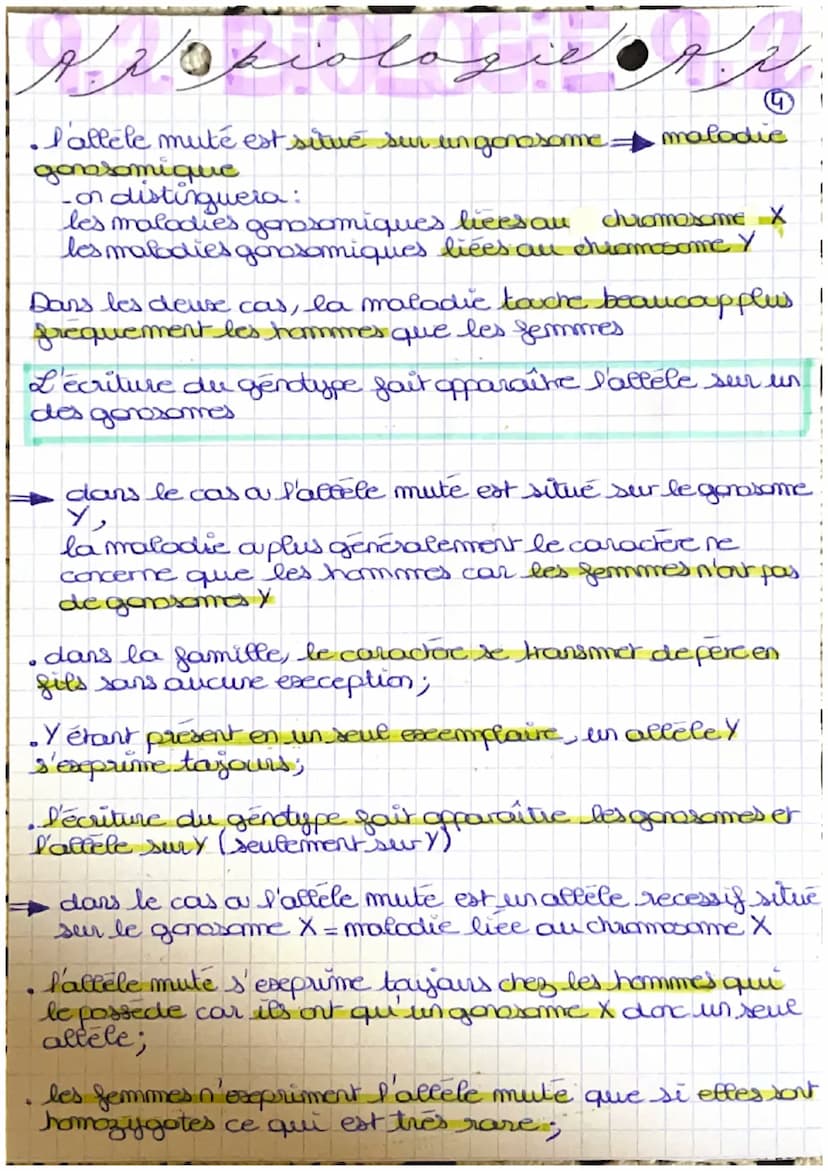 9.2 BIOLOGIE 9.2
A.2 biologie A.2
4
. l'allèle muté est situé sur un gonosome ⇒ maladie
gonosomique
- on distinguera :
les maladies gonosomiques liées au chromosome X
les maladies gonosomiques liées au chromosome Y
Dans les deux cas, la maladie touche beaucoup plus
fréquement les hommes que les femmes
L'écriture du génotype fait apparaître l'allèle sur un
des gonosomes
⇒ dans le cas où l'allèle muté est situé sur le gonosome
Y,
la maladie ou plus généralement le caractère ne
concerne que les hommes car les femmes n'ont pas
de gonosomes Y
. dans la famille, le caractère se transmet de père en
fils sans aucune exeception ;
. Y étant présent en un seul excemplaire, un allèle Y
s'exeprime toujours ;
. l'écriture du génotype fait apparaître les gonosomes et
l'allèle sur Y (seulement sur Y)
⇒ dans le cas où l'allèle muté est un allèle recessif situé
sur le gonosome X = maladie liée au chromosome X
. l'allèle muté s'exeprime toujours chez les hommes qui
le possède car ils ont qu'un gonosome X donc un seul
allèle ;
. les femmes n'exepriment l'allèle muté que si elles sont
homozygotes ce qui est très rare ;